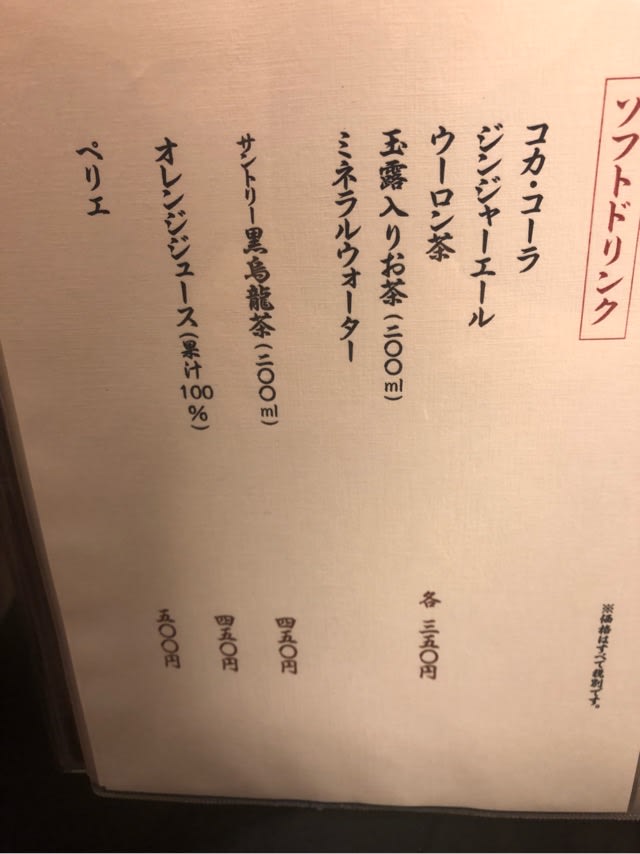 ソフトドリンク
※価格はすべて税別です。
コカ・コーラ
ジンジャーエール
ウーロン茶
玉露入りお茶(二〇〇ml)
ミネラルウォーター
各 三五〇円
サントリー黒烏龍茶(二〇〇ml)
四五〇円
オレンジジュース(果汁100%)
四五〇円
ペリエ
五〇〇円